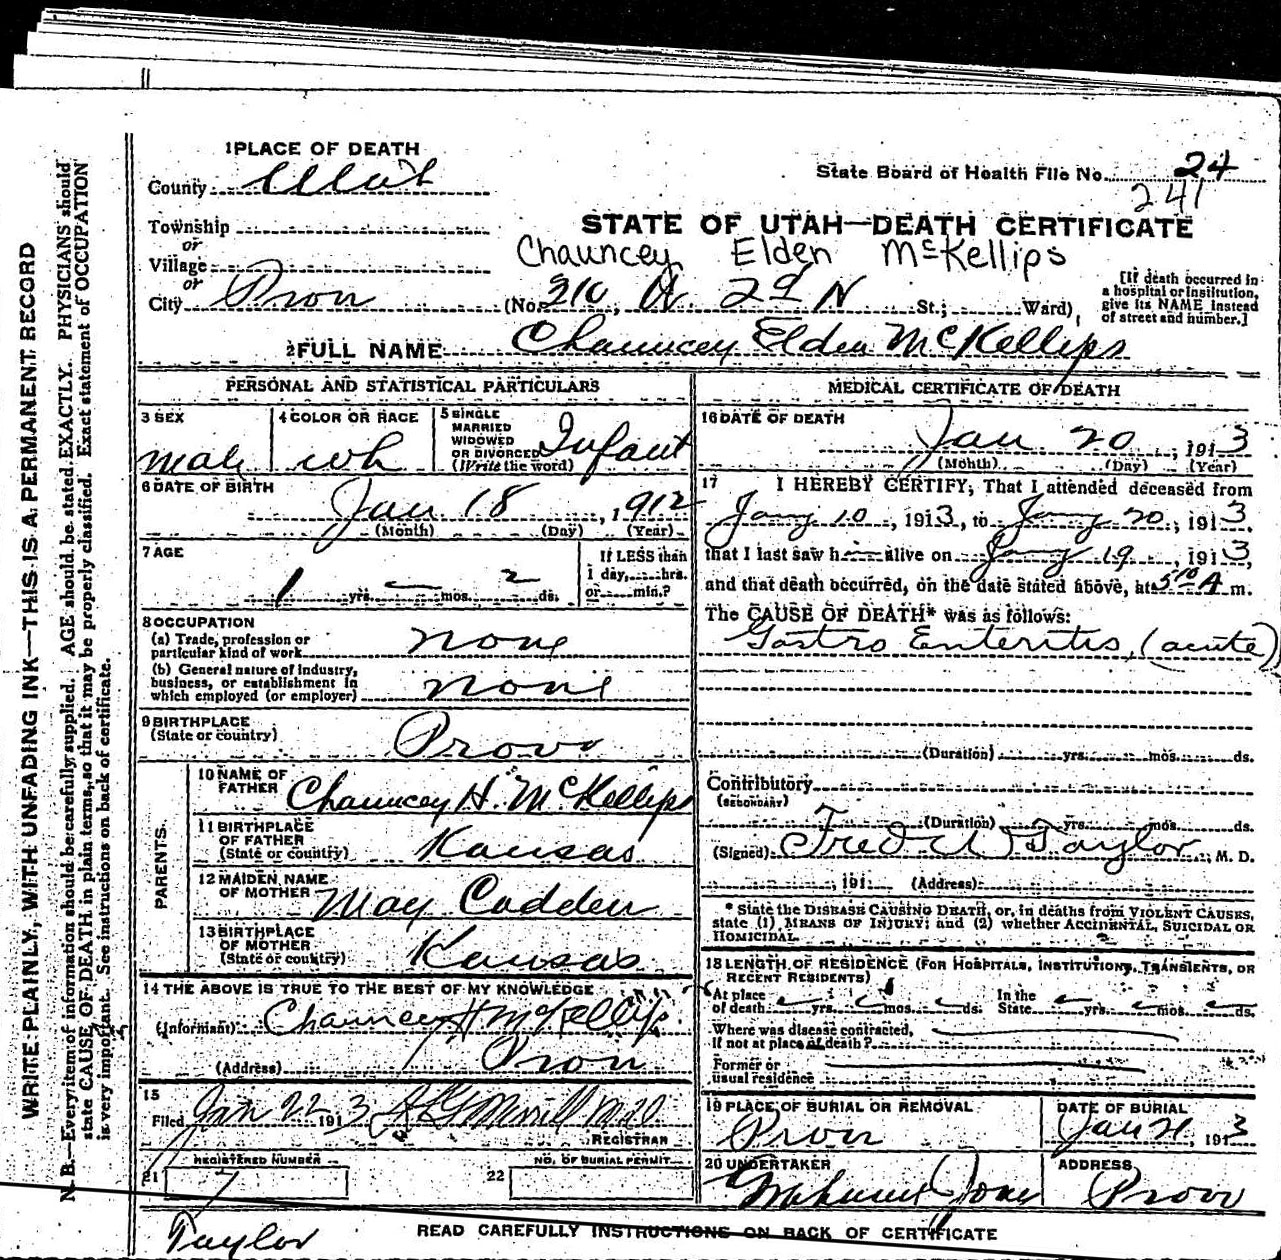 WRITE PLAINLY, WITH UNFADING INK—THIS IS A PERMANENT RECORD
N. B.—Every item of information should be carefully supplied. AGE should be stated EXACTLY. PHYSICIANS should
state CAUSE OF DEATH in plain terms, so that it may be properly classified. Exact statement of OCCUPATION
is very important. See instructions on back of certificate.
1 PLACE OF DEATH
County Utah
State Board of Health File No. 24
241
Township
or
Village
or
City Provo
STATE OF UTAH—DEATH CERTIFICATE
Chauncey Elden McKellips
(No. 210 W. 2d N St.; Ward)
[If death occurred in
a hospital or institution,
give its NAME instead
of street and number.]
2 FULL NAME Chauncey Elden McKellips
PERSONAL AND STATISTICAL PARTICULARS
3 SEX
male
4 COLOR OR RACE
wh
5 SINGLE
MARRIED
WIDOWED
OR DIVORCED
(Write the word)
Infant
6 DATE OF BIRTH
Jan 18, 1912
(Month) (Day) (Year)
7 AGE
1 yrs. – mos. 2 ds.
If LESS than
1 day, hrs.
or min.?
8 OCCUPATION
(a) Trade, profession or
particular kind of work none
(b) General nature of industry,
business, or establishment in
which employed (or employer) none
9 BIRTHPLACE
(State or country) Provo
PARENTS
10 NAME OF
FATHER Chauncey H. McKellips
11 BIRTHPLACE
OF FATHER
(State or country) Kansas
12 MAIDEN NAME
OF MOTHER May Cadden
13 BIRTHPLACE
OF MOTHER
(State or country) Kansas
14 THE ABOVE IS TRUE TO THE BEST OF MY KNOWLEDGE
(Informant) Chauncey H McKellips
(Address) Provo
15
Filed Jan 22 1913
REGISTRAR
REGISTERED NUMBER
21 7
NO. OF BURIAL PERMIT
22
MEDICAL CERTIFICATE OF DEATH
16 DATE OF DEATH
Jan 20, 1913
(Month) (Day) (Year)
17 I HEREBY CERTIFY, That I attended deceased from
Jany 10, 1913, to Jany 20, 1913,
that I last saw h— alive on Jany 19, 1913,
and that death occurred, on the date stated above, at 5 10 A m.
The CAUSE OF DEATH* was as follows:
Gastro Enteritis, (acute)
(Duration) yrs. mos. ds.
Contributory
(SECONDARY)
(Duration) yrs. mos. ds.
(Signed) Fred W Taylor, M. D.
, 191 (Address)
* State the DISEASE CAUSING DEATH, or, in deaths from VIOLENT CAUSES,
state (1) MEANS OF INJURY; and (2) whether ACCIDENTAL, SUICIDAL OR
HOMICIDAL.
18 LENGTH OF RESIDENCE (FOR HOSPITALS, INSTITUTIONS, TRANSIENTS, OR
RECENT RESIDENTS)
At place
of death yrs. mos. ds.
In the
State yrs. mos. ds.
Where was disease contracted,
if not at place of death?
Former or
usual residence
19 PLACE OF BURIAL OR REMOVAL
Provo
DATE OF BURIAL
Jan 21, 1913
20 UNDERTAKER
ADDRESS
Provo
Taylor
READ CAREFULLY INSTRUCTIONS ON BACK OF CERTIFICATE